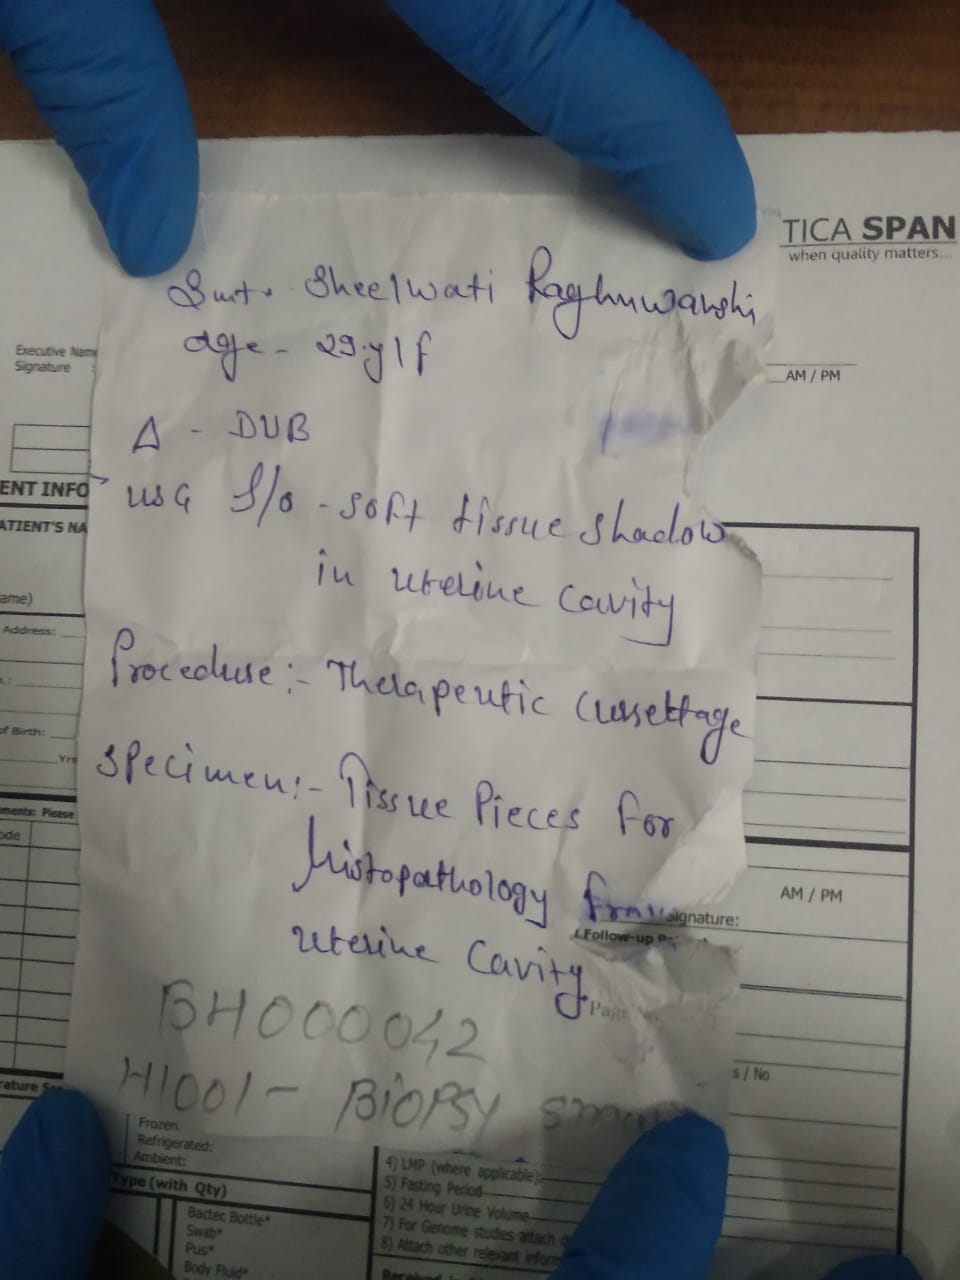 TICA SPAN
when quality matters...
Smt. Sheelwati Raghuwanshi
age - 29.y/f
Executive Name
Signature :
AM / PM
Δ - DUB
ENT INFO
USG S/o - soft tissue shadow
ATIENT'S NA
in uterine cavity
ame)
Address:
Procedure :- Therapeutic Curettage
of Birth:
Yrs
Specimen :- Tissue Pieces for
ments: Please
ode
histopathology from
AM / PM
signature:
Follow-up
uterine Cavity.
BH000042
s / No
H1001 - BiOPSY small
rature
Frozen.
Refrigerated:
Ambient:
Type (with Qty)
Bactec Bottle*
Swab*
Pus*
Body Fluid*
4) LMP (where applicable):
5) Fasting Period
6) 24 Hour Urine Volume
7) For Genome studies attach
8) Attach other relevant